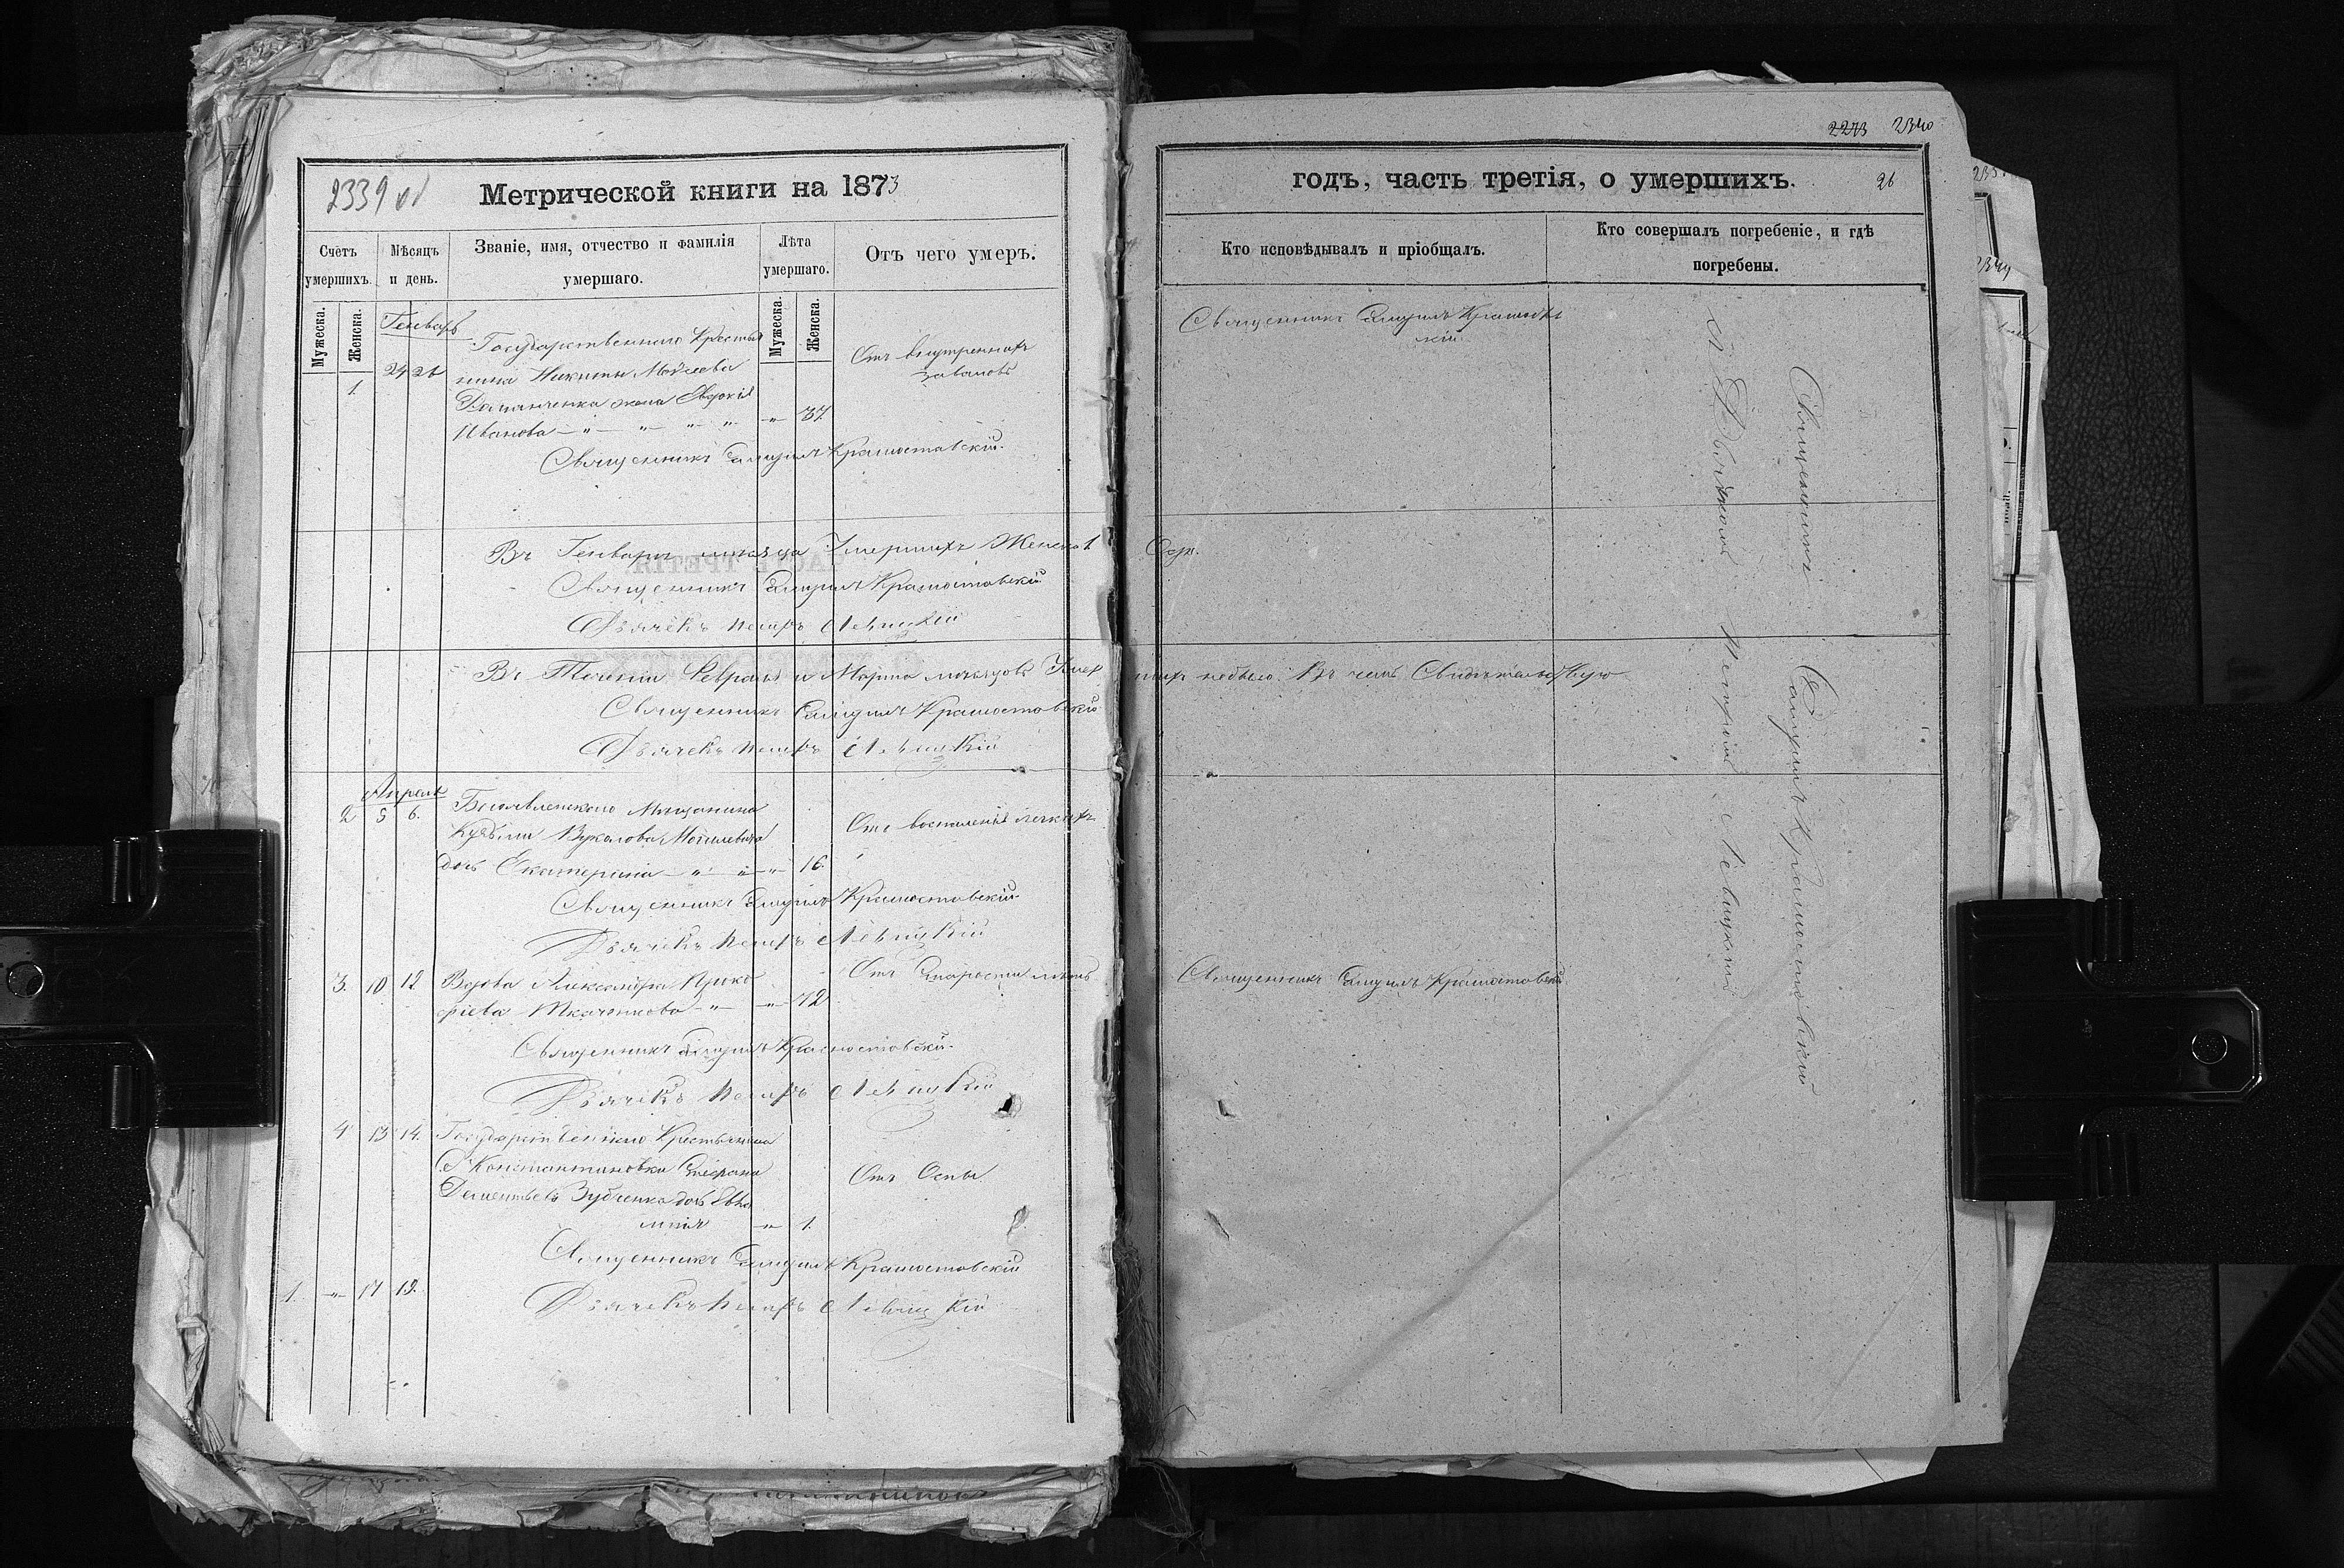 2339 об
Метрической книги на 1873
Счетъ умершихъ.
Мѣсяцъ и день.
Званіе, имя, отчество и фамилія умершаго.
Лѣта умершаго.
Отъ чего умеръ.
Мужеска.
Женска.
Мужеска.
Женска.
Генварь
1. 24 26
Государственнаго Крестья
нина Никиты Моисеева
жена Евдокія
Иванова — " — " — " — " 37
Отъ внутреннихъ
заваловъ
Священникъ Самуилъ Крамостовскій
Въ Генварѣ мѣсяцѣ Умершихъ Женска 1
Священникъ Самуилъ Крамостовскій
Дьячекъ Петръ Левицкій
Въ Теченіи Февраля и Марта мѣсяцовъ Умер
Священникъ Самуилъ Крамостовскій
Дьячекъ Петръ Левицкій
Апрель
2 5 6.
Богоявленскаго Мѣщанина
Кузьмы Вуколова
дочь Екатерина — " — " — " 16
Отъ воспаленія легкихъ
Священникъ Самуилъ Крамостовскій
Дьячекъ Петръ Левицкій
3. 10 12
Вдова Александра Проко
фіева Ткаченкова — " — " 72
Отъ Старости лѣтъ
Священникъ Самуилъ Крамостовскій
Дьячекъ Петръ Левицкій
4 13 14.
Государственнаго Крестьянина
С. Константиновки Стефана
Дементьева Зубченка дочь Евѳи
мія " 1.
Отъ Оспы
Священникъ Самуилъ Крамостовскій
1. " 17 19.
Дьячекъ Петръ Левицкій
2273 2340
годъ, часть третія, о умершихъ.
26
Кто исповѣдывалъ и пріобщалъ.
Кто совершалъ погребеніе, и гдѣ погребены.
Священникъ Самуилъ Крамостов
скій
шихъ небыло. Въ чемъ Свидѣтельствую
Священникъ Самуилъ Крамостовскій
Священникъ Самуилъ Крамостовскій
съ Дьячкомъ Петромъ Левицкимъ